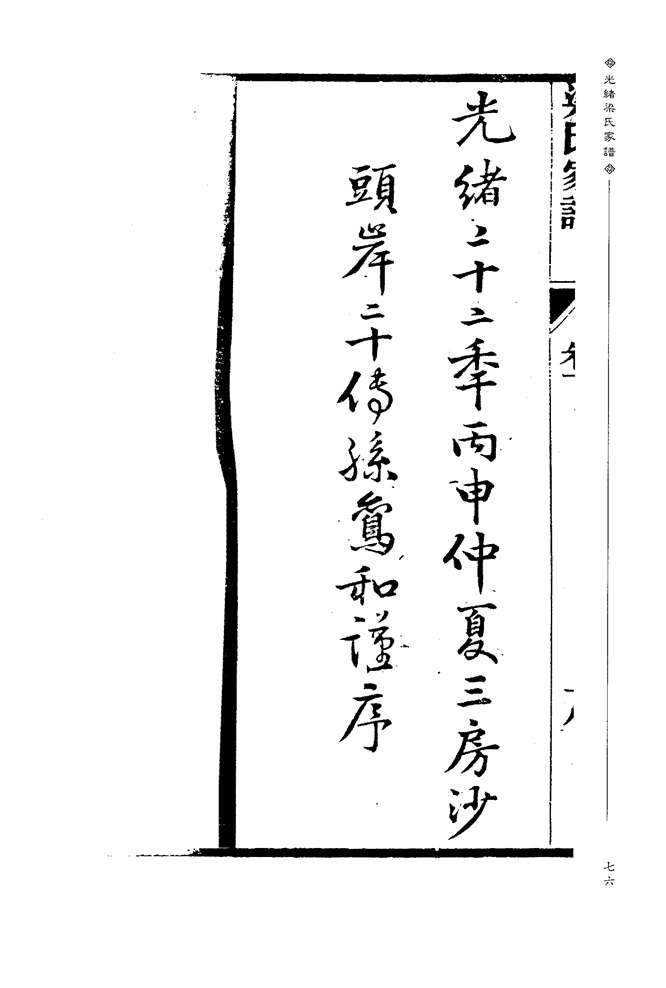 光緒梁氏家譜
梁氏家譜
卷一
光緒二十二年丙申仲夏三房沙
頭岸二十傳孫鸞和謹序
七六